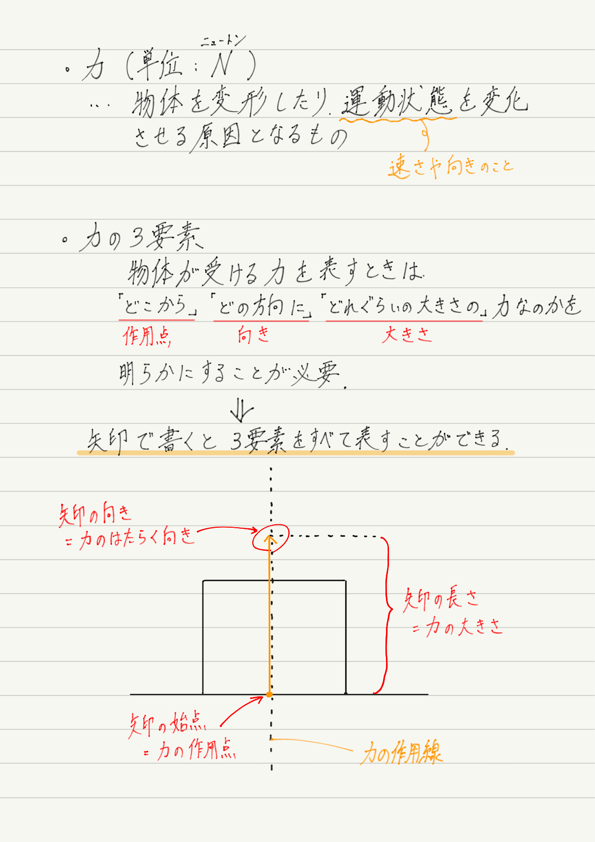 ニュートン
・力 (単位: N)
… 物体を変形したり, 運動状態を変化
させる原因となるもの
速さや向きのこと
・力の3要素
物体が受ける力を表すときは
「どこから」「どの方向に」「どれぐらいの大きさの」力なのかを
作用点, 向き 大きさ
明らかにすることが必要.
⇓
矢印で書くと 3要素をすべて表すことができる.
矢印の向き
=力のはたらく向き
矢印の長さ
=力の大きさ
矢印の始点
=力の作用点
力の作用線